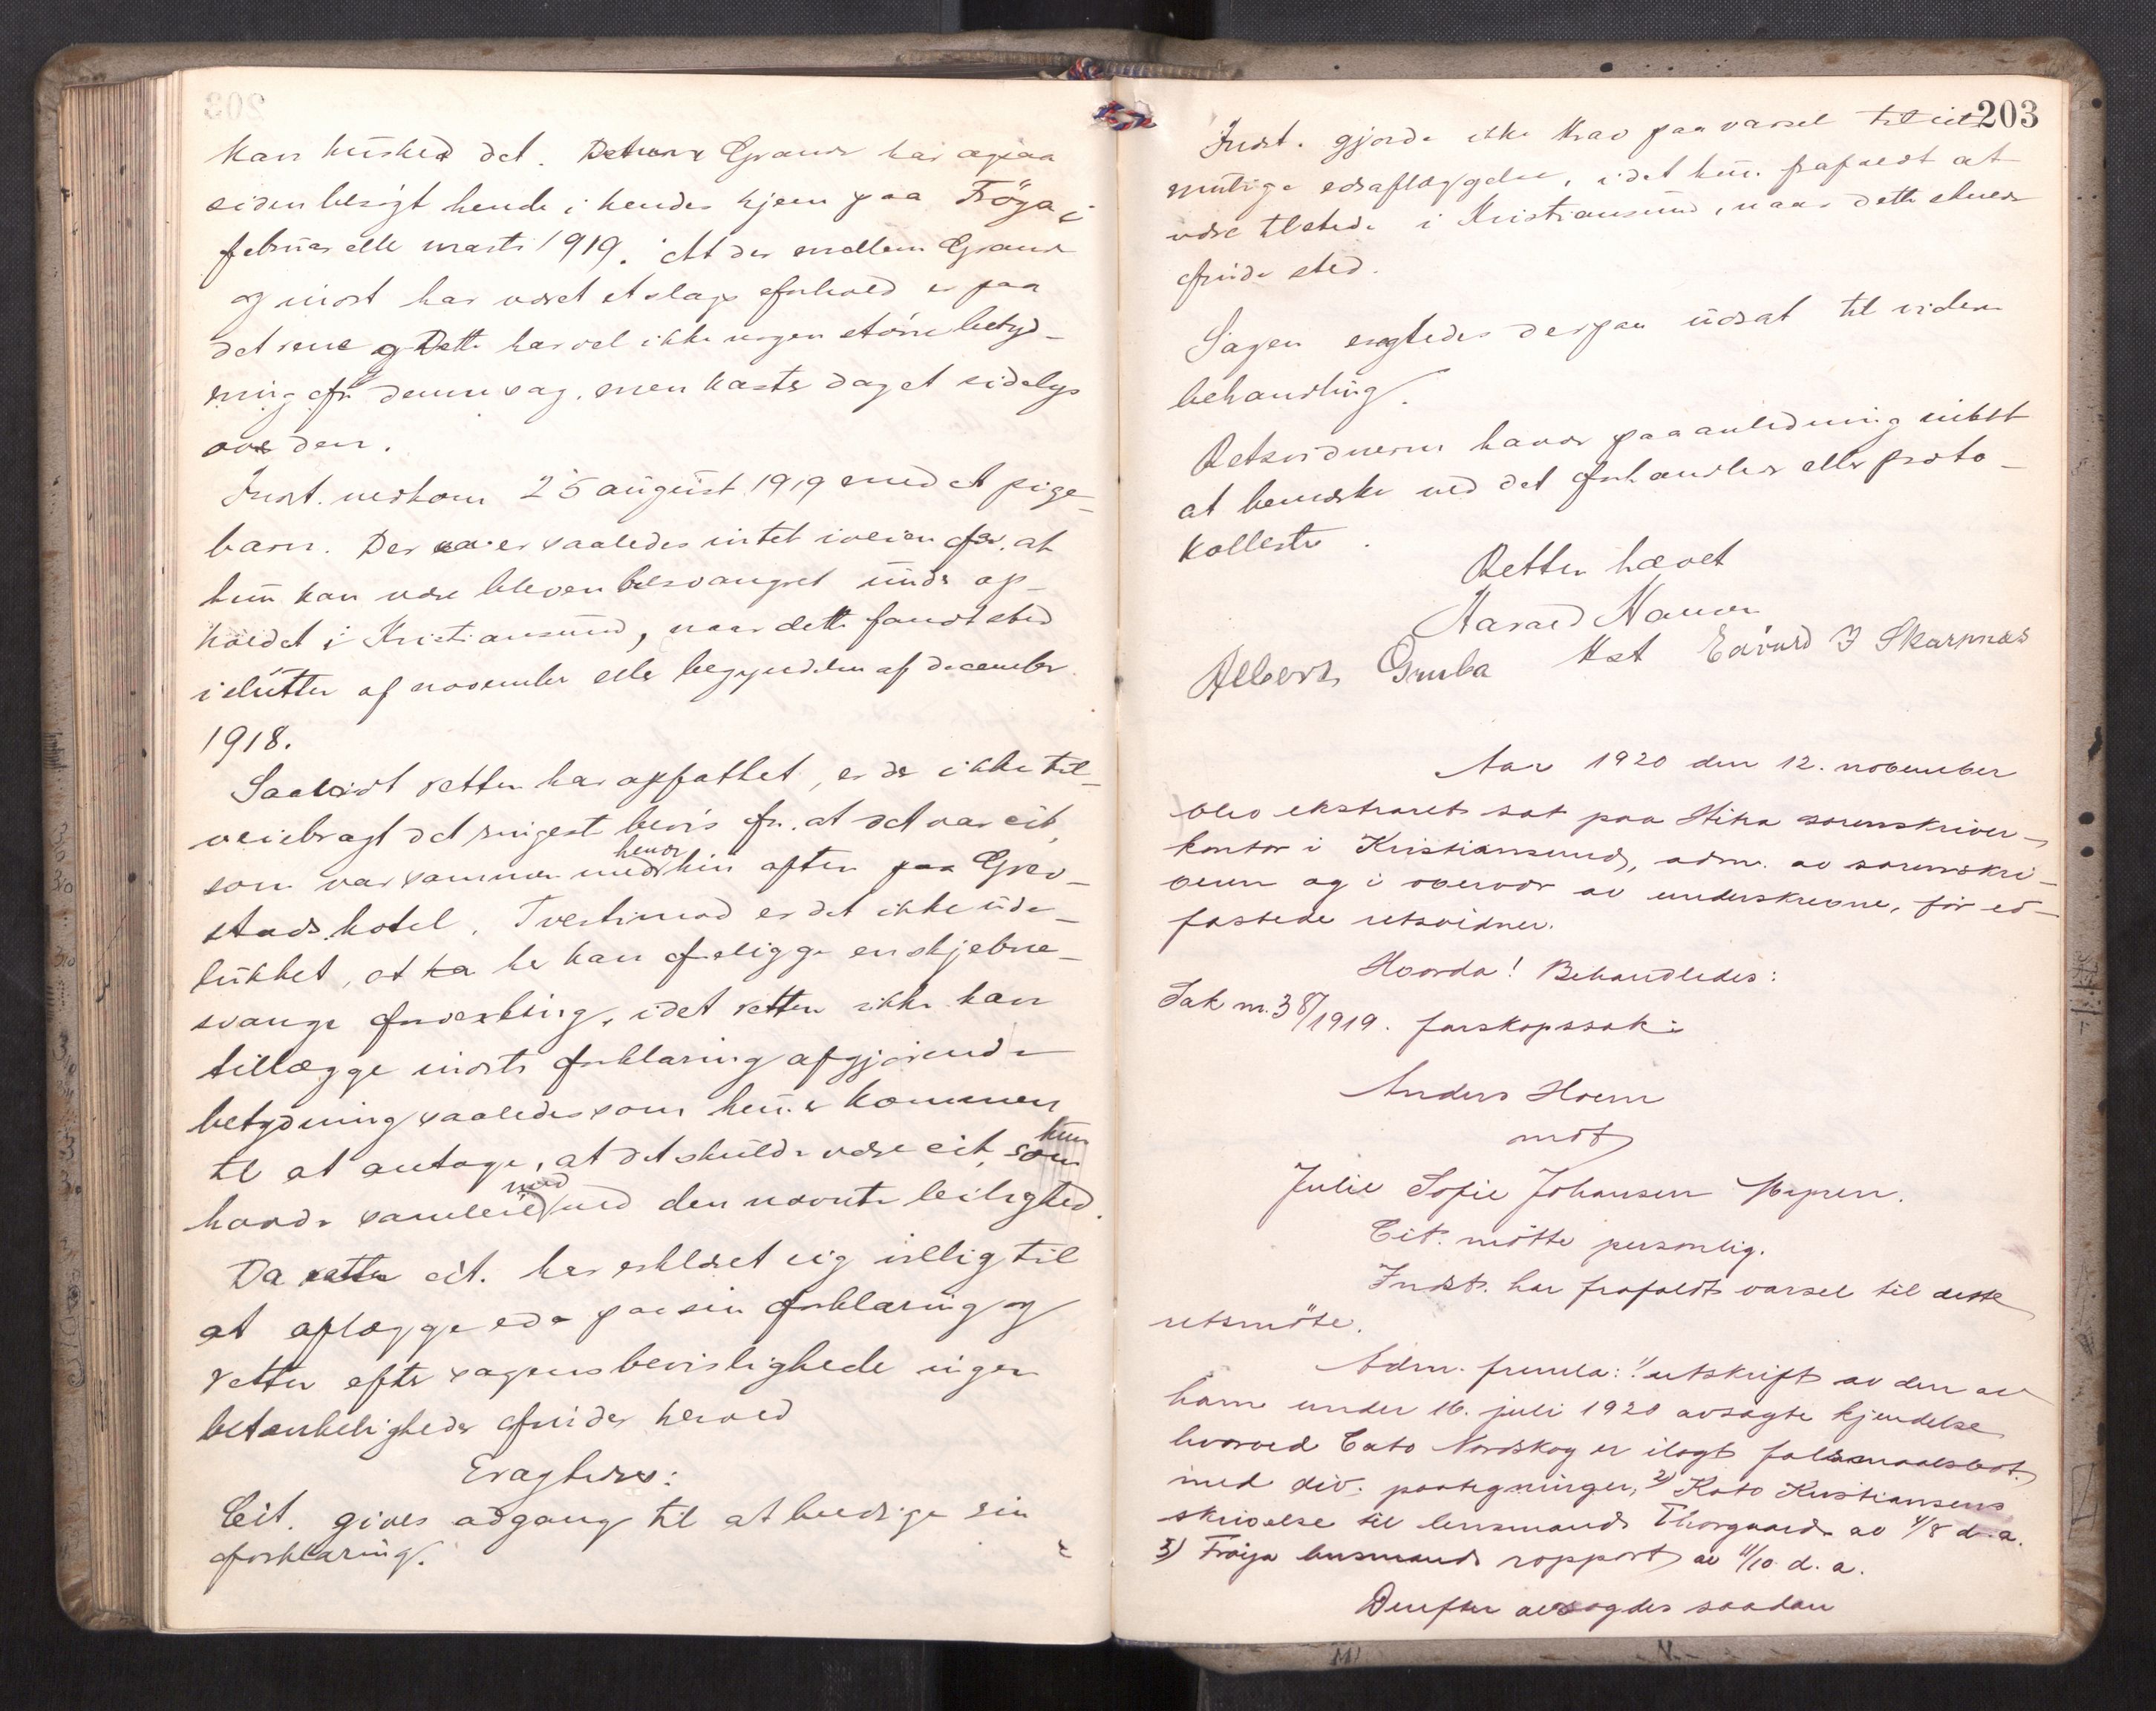 kan husket det. Granes har ogsaa
siden besøgt hende i hendes hjem paa Frøya i
februar elle marts 1919. At der mellem Granes
og indst har været et slags forhold er paa
det rene og Dette har vel ikke nogen større betyd-
ning for denne sag, men kaster dog et sidelys
over den.
Indst. nedkom 25 august 1919 med et pige-
barn. Der er saaledes intet iveien for, at
hun kan være bleven besvangret under op-
holdet i Kristiansund, naar dette fandt sted
i slutten af november eller begyndelsen af december
1918.
Saavidt retten har opfattet, er der ikke til-
veiebragt det ringeste bevis for, at det var cit,
som var sammen med hende hin aften paa Grev-
stads hotel. Tvertimod er det ikke ude-
lukket, at her kan foreligge en skjebne-
svanger forvexling, idet retten ikke kan
tillægge indsts forklaring afgjørende
betydning saaledes som hun er kommen
til at antage, at det skulde være cit, som hun
havde samleie med ved den nævnte leilighed.
Da cit. har erklæret sig villig til
at aflægge ed paa sin forklaring og
retten efter sagens bevisligheder ingen
betænkeligheder finder herved
Eragtedes:
Cit. gives adgang til at beedige sin
forklaring.
203
Indst. gjorde ikke krav paa varsel til cit.
mulige edsaflæggelse, idet hun frafaldt at
være tilstede i Kristiansund, naar dette skulde
finde sted.
Sagen eragtedes derpaa udsat til videre
behandling.
Retsvidnerne havde paa anledning intet
at bemærke ved det forhandlede eller proto-
kollerte.
Retten hævet
Harald Hansen
Kst
Albert Gruba Edvard J Skarpnes
Aar 1920 den 12. november
blev ekstraret sat paa Hitra sorenskriver-
kontor i Kristiansund, adm. av sorenskri-
veren og i overvær av underskrevne, før ed-
fæstede retsvidner.
Hvorda! Behandledes:
Sak nr. 38/1919. farskapssak:
Anders Hoem
mot
Julie Sofie Johansen
Cit. møtte personlig.
Indst. har frafaldt varsel til dette
retsmøte.
Adm. fremla: 1) utskrift av den av
ham under 16. juli 1920 avsagte kjendelse
hvorved Cato Nordskog er ilagt falsmaalsbot
med div. paategninger, 2) Kato Kristiansens
skrivelse til lensmand Thorgaard av 4/8 d.a.
3) Frøya lensmands rapport av 11/10 d.a.
Derefter avsagdes saadan